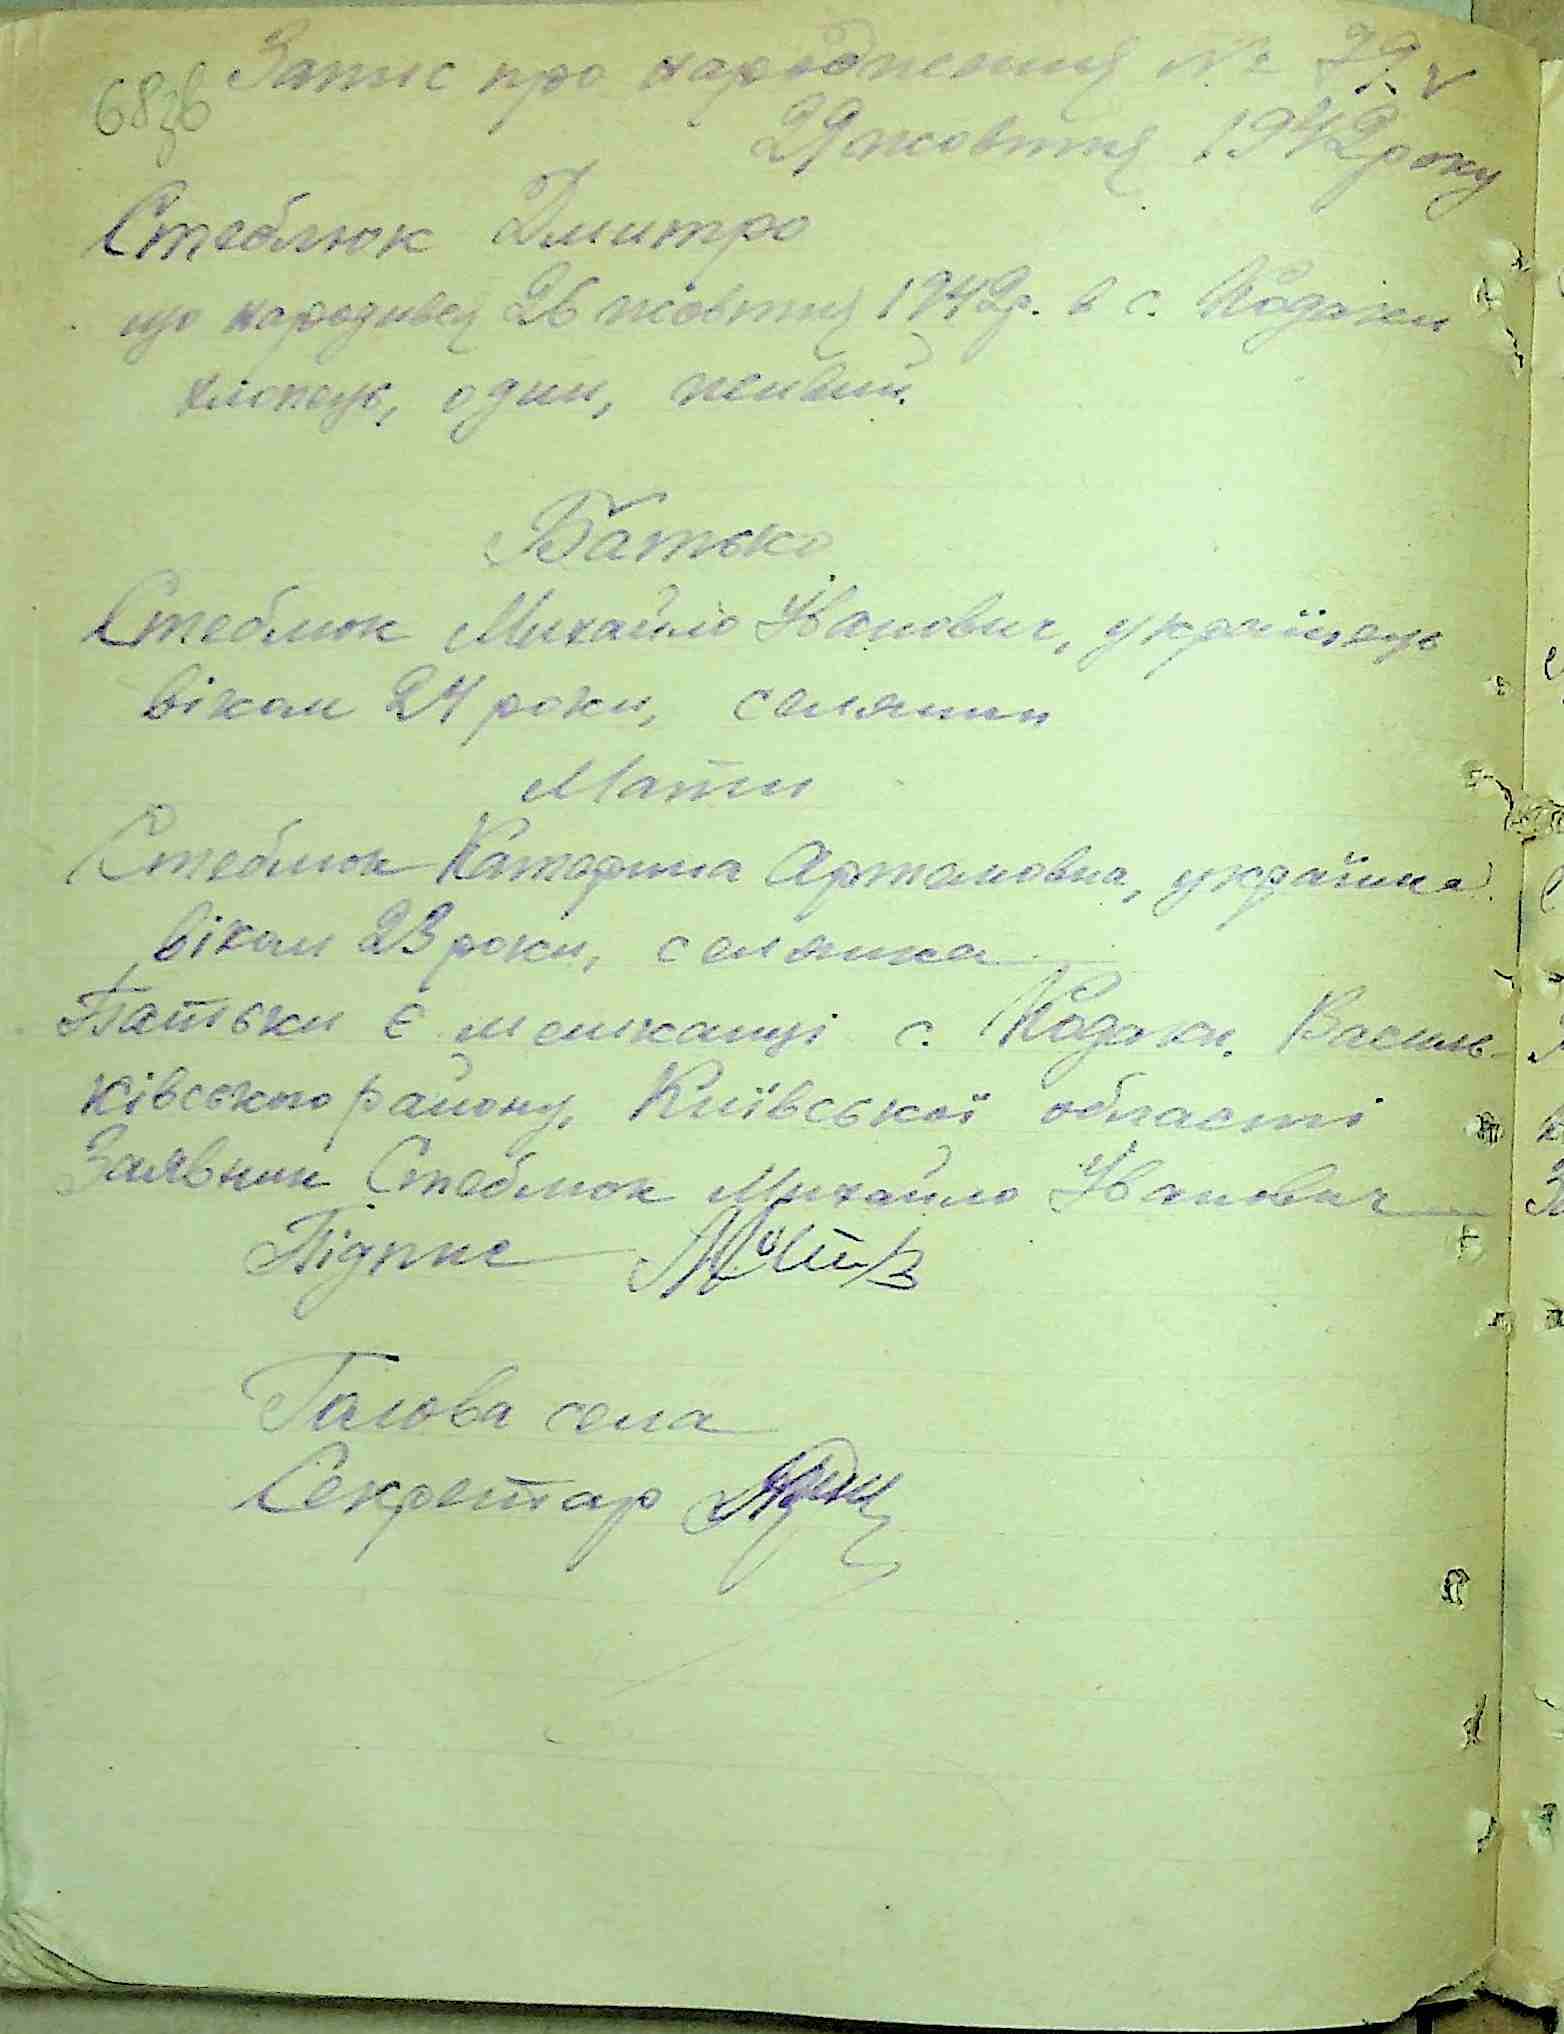 Запис про народження № 79
68зв
29 жовтня 1942 року
Стеблюк Дмитро
що народивсь 26 жовтня 1942р. в с. Кодаки
хлопець, один, живий.
Батько
Стеблюк Михайло Іванович, українець
віком 24 роки, селянин
Мати
Стеблюк Катерина Артемовна, українка
віком 23 роки, селянка
Батьки є мешканці с. Кодаки. Василь-
ківського району, Київської області
Заявник Стеблюк Михайло Іванович
Підпис
Голова села
Секретар